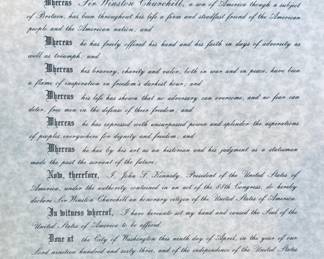 Whereas Sir Winston Churchill, a son of America though a subject
of Britain, has been throughout his life a firm and steadfast friend of the American
people and the American nation; and
Whereas he has freely offered his hand and his faith in days of adversity as
well as triumph; and
Whereas his bravery, charity and valor, both in war and in peace, have been
a flame of inspiration in freedom's darkest hour; and
Whereas his life has shown that no adversary can overcome, and no fear can
deter, free men in the defense of their freedom; and
Whereas he has expressed with unsurpassed power and splendor the aspirations
of peoples everywhere for dignity and freedom; and
Whereas he has by his art as an historian and his judgment as a statesman
made the past the servant of the future;
Now, therefore, I, John F. Kennedy, President of the United States of
America, under the authority contained in an act of the 88th Congress, do hereby
declare Sir Winston Churchill an honorary citizen of the United States of America.
In witness whereof, I have hereunto set my hand and caused the Seal of the
United States of America to be affixed.
Done at the City of Washington this ninth day of April, in the year of our
Lord nineteen hundred and sixty-three, and of the independence of the United States